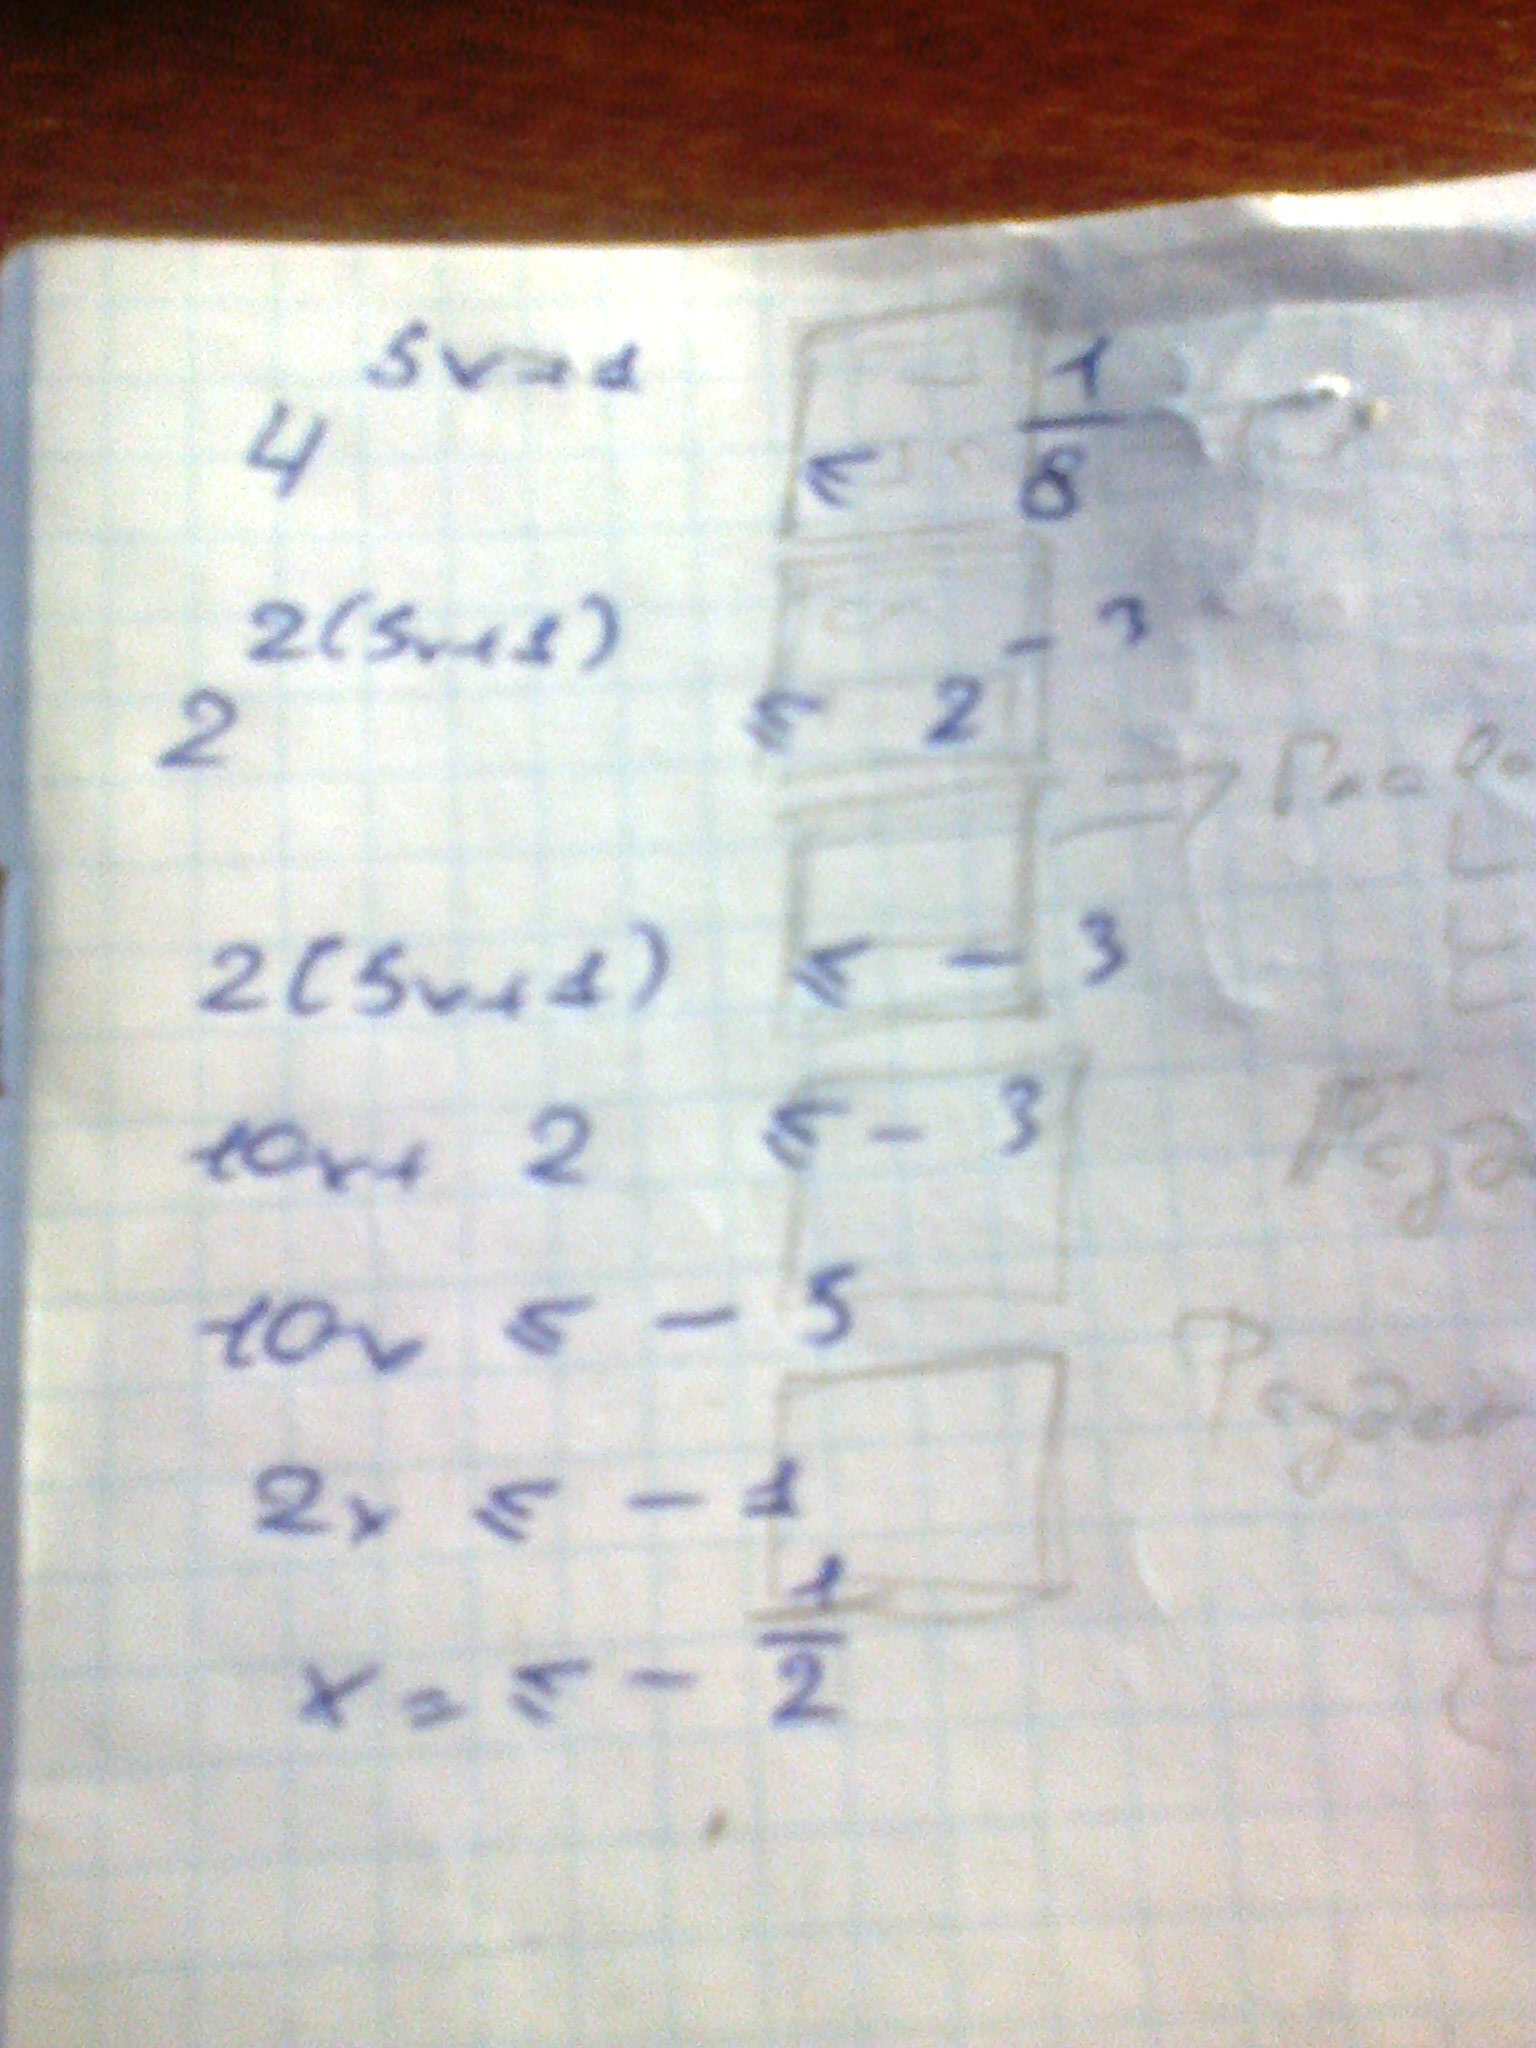 4^(5x+1) ≤ 1/8
2^(2(5x+1)) ≤ 2^(-3)
2(5x+1) ≤ -3
10x+2 ≤ -3
10x ≤ -5
2x ≤ -1
x = ≤ - 1/2